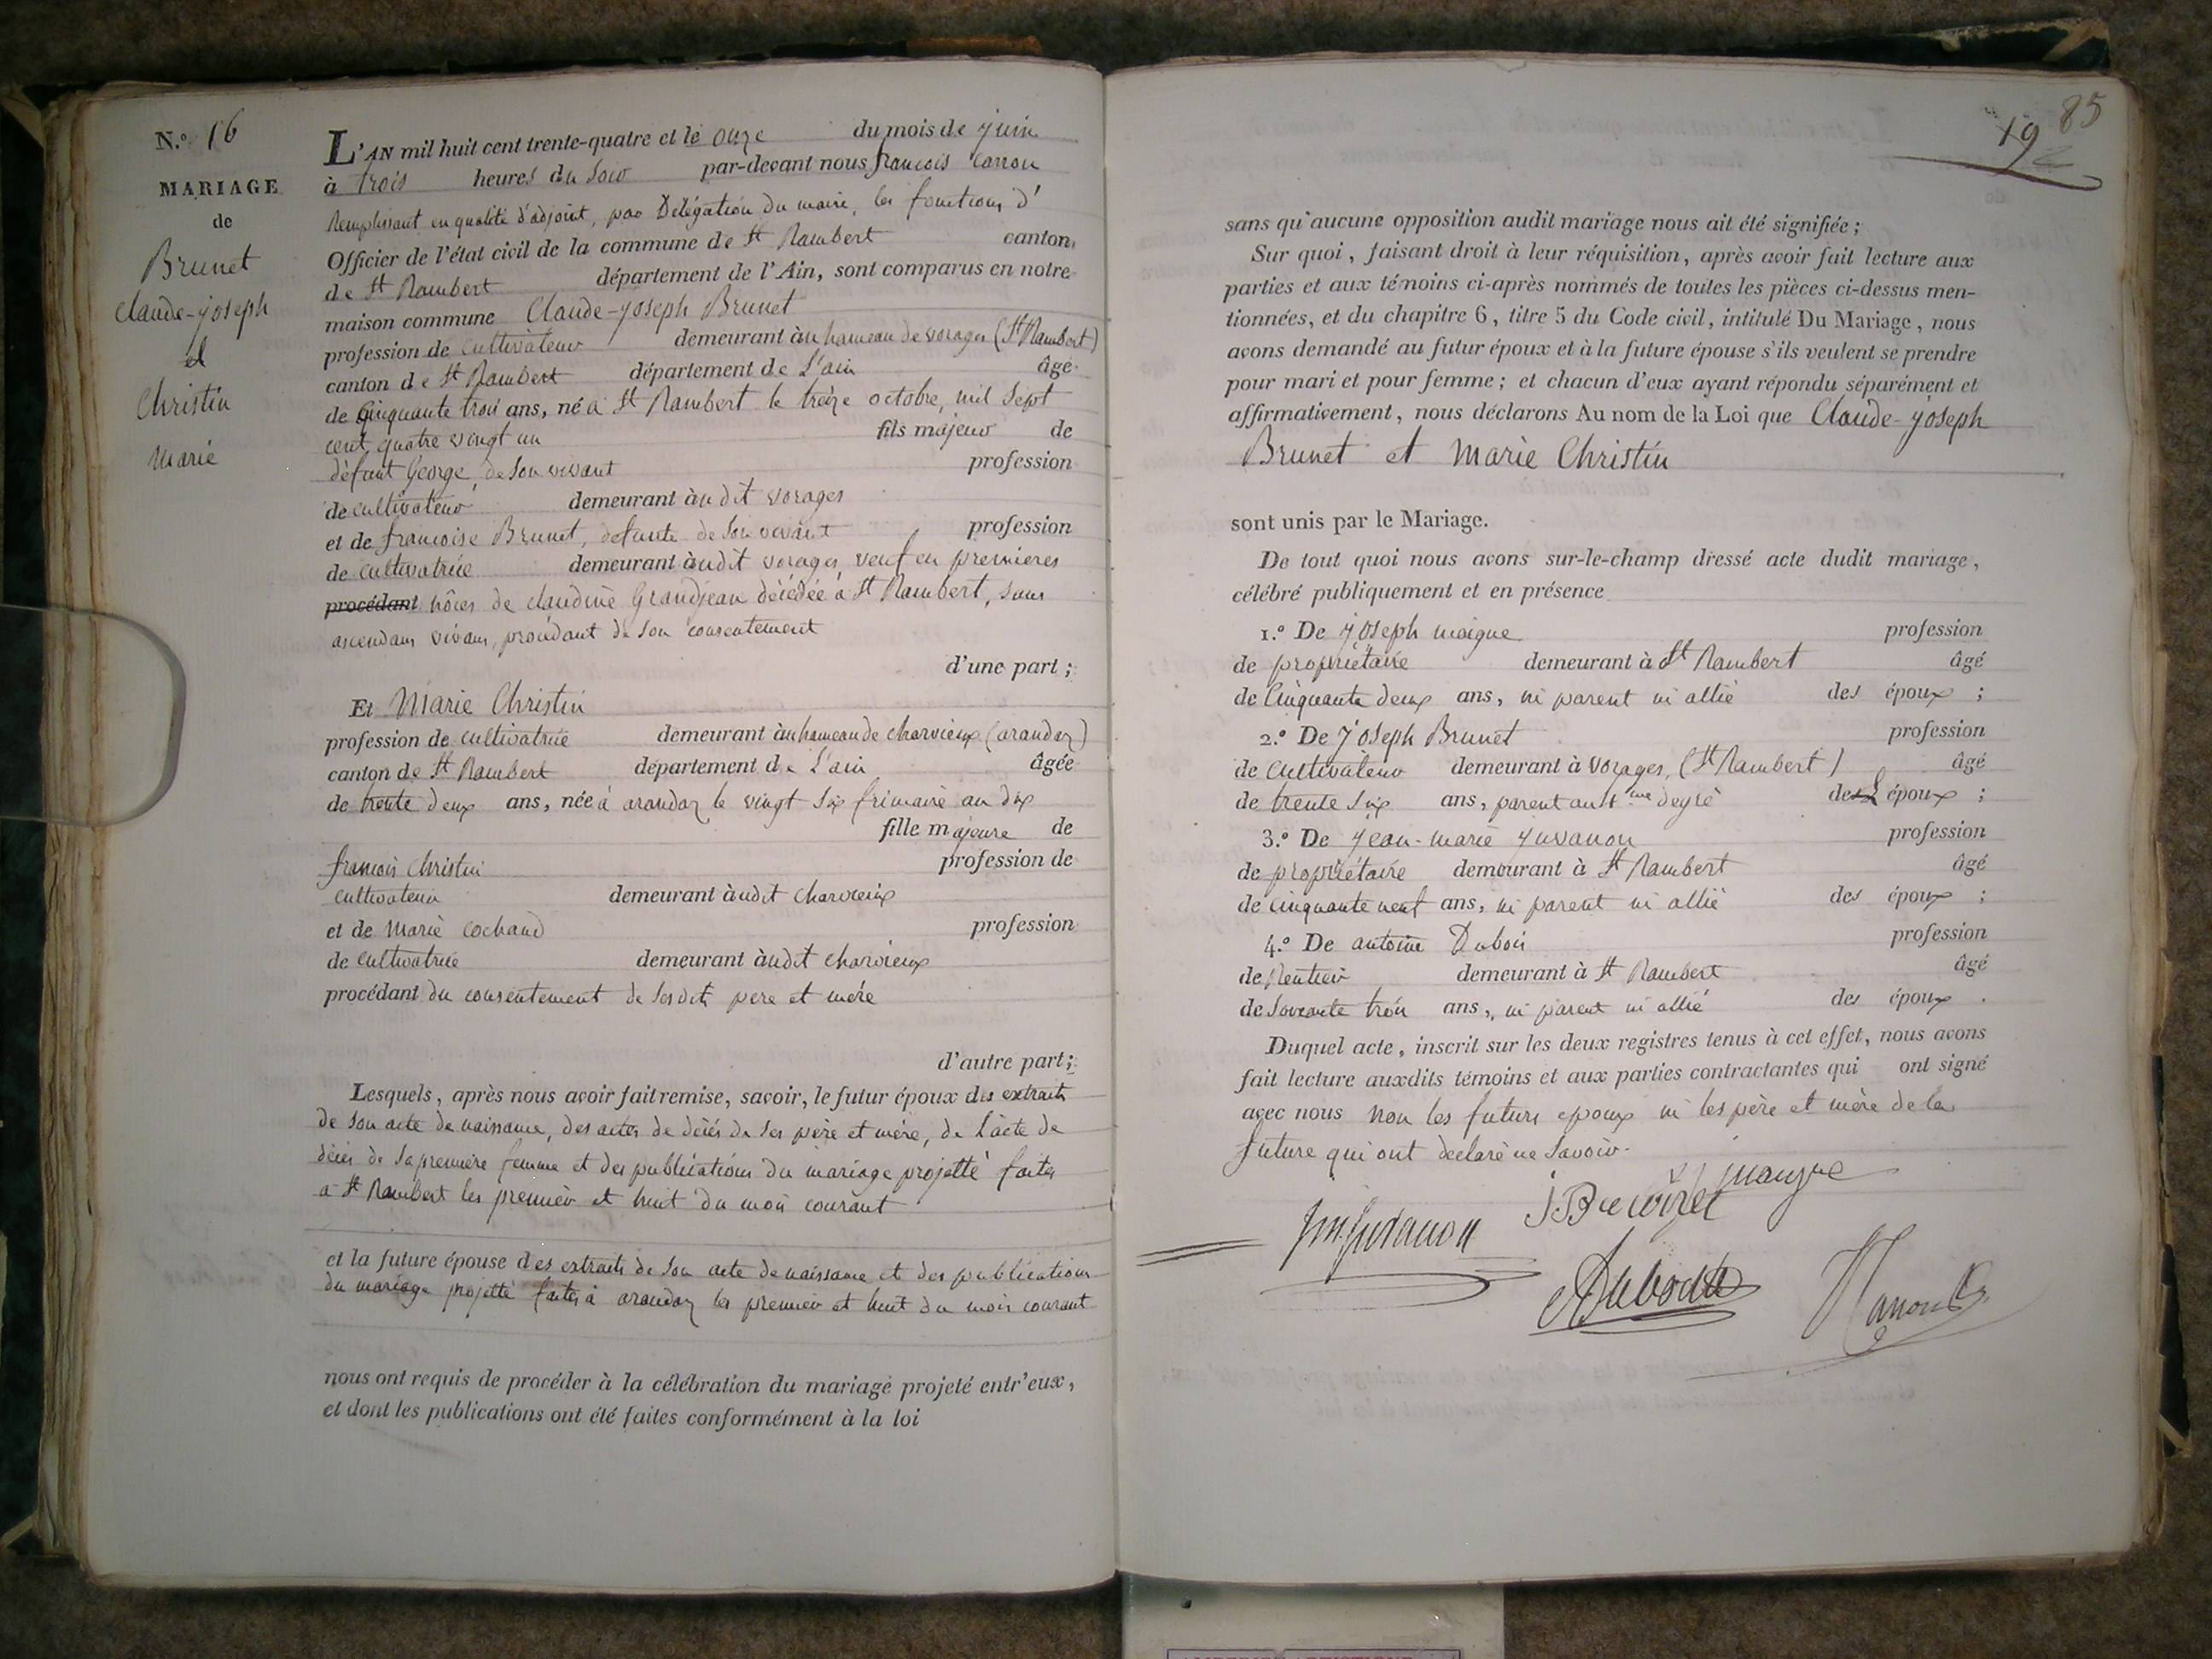 N.º 16
MARIAGE
de
Brunet
Claude-joseph
et
Christin
Marie
L'AN mil huit cent trente-quatre et le onze du mois de juin
à trois heures du soir par-devant nous francois Carron
Remplissant en qualité d'adjoint, par Délégation du maire, les fonctions d'
Officier de l'état civil de la commune de St Rambert canton
de St Rambert département de l'Ain, sont comparus en notre
maison commune Claude-joseph Brunet
profession de cultivateur demeurant à au hameau de vorages (St Rambert)
canton de St Rambert département de L'ain âgé
de Cinquante trois ans, né à St Rambert le treize octobre, mil sept
cent quatre vingt un fils majeur de
défunt George, de son vivant profession
de cultivateur demeurant à udit vorages
et de francoise Brunet, defunte de son vivant profession
de cultivatrice demeurant à udit vorages, veuf en premieres
procédant nôces de claudine Grandjean décédée à St Rambert, sans
ascendans vivans, procédant de son consentement
d'une part ;
Et Marie Christin
profession de cultivatrice demeurant à au hameau de charvieux (arandaz)
canton de St Rambert département de L'ain âgée
de trente deux ans, née à arandaz le vingt six frimaire an dix
fille majeure de
francois Christin profession de
cultivateur demeurant à udit charvieux
et de Marie cochand profession
de cultivatrice demeurant à udit charvieux
procédant du consentement de sesdits pere et mére
d'autre part ;
Lesquels, après nous avoir fait remise, savoir, le futur époux des extraits
de son acte de naissance, des actes de décés de ses père et mère, de l'acte de
décés de sa première femme et des publications du mariage projetté faites
à St Rambert les premier et huit du mois courant
et la future épouse des extraits de son acte de naissance et des publications
du mariage projetté faites à arandaz les premier et huit du mois courant
nous ont requis de procéder à la célébration du mariage projeté entr'eux,
et dont les publications ont été faites conformément à la loi
85
19
sans qu'aucune opposition audit mariage nous ait été signifiée ;
Sur quoi, faisant droit à leur réquisition, après avoir fait lecture aux
parties et aux témoins ci-après nommés de toutes les pièces ci-dessus men-
tionnées, et du chapitre 6, titre 5 du Code civil, intitulé Du Mariage, nous
avons demandé au futur époux et à la future épouse s'ils veulent se prendre
pour mari et pour femme ; et chacun d'eux ayant répondu séparément et
affirmativement, nous déclarons Au nom de la Loi que Claude-joseph
Brunet et Marie Christin
sont unis par le Mariage.
De tout quoi nous avons sur-le-champ dressé acte dudit mariage,
célébré publiquement et en présence
1.º De joseph maigne profession
de propriétaire demeurant à St Rambert âgé
de Cinquante deux ans, ni parent ni allié des époux ;
2.º De joseph Brunet profession
de Cultivateur demeurant à vorages, (St Rambert) âgé
de trente six ans, parent au 4.me degré de L époux ;
3.º De jean-marie juvanon profession
de propriétaire demeurant à St Rambert âgé
de cinquante neuf ans, ni parent ni allié des époux ;
4.º De antoine Dubois profession
de Rentier demeurant à St Rambert âgé
de soixante trois ans, ni parent ni allié des époux .
Duquel acte, inscrit sur les deux registres tenus à cet effet, nous avons
fait lecture auxdits témoins et aux parties contractantes qui ont signé
avec nous non les futurs epoux ni les père et mère de la
future qui ont declaré ne savoir.